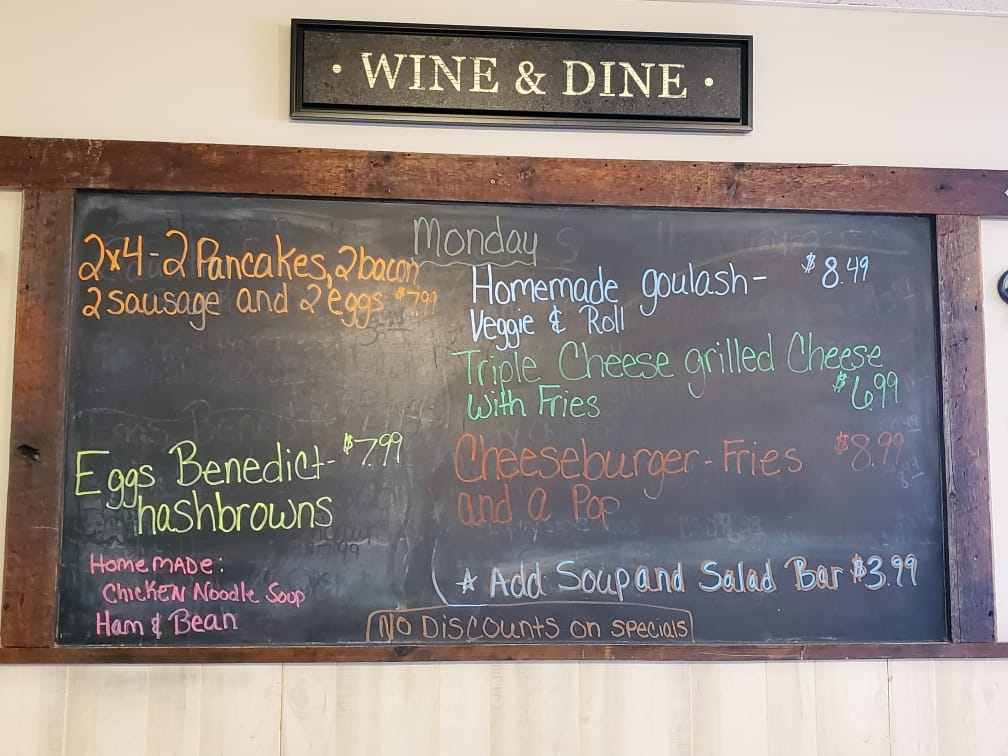 · WINE & DINE ·
Monday
2x4-2 Pancakes, 2 bacon
2 sausage and 2 eggs $7.99
Eggs Benedict- $7.99
hashbrowns
HomeMADE:
ChicKEN Noodle Soup
Ham & Bean
Homemade goulash- $8.49
Veggie & Roll
Triple Cheese grilled Cheese
With Fries $6.99
Cheeseburger-Fries $8.99
and a Pop
☆ Add Soup and Salad Bar $3.99
NO DISCOUNTS on specials